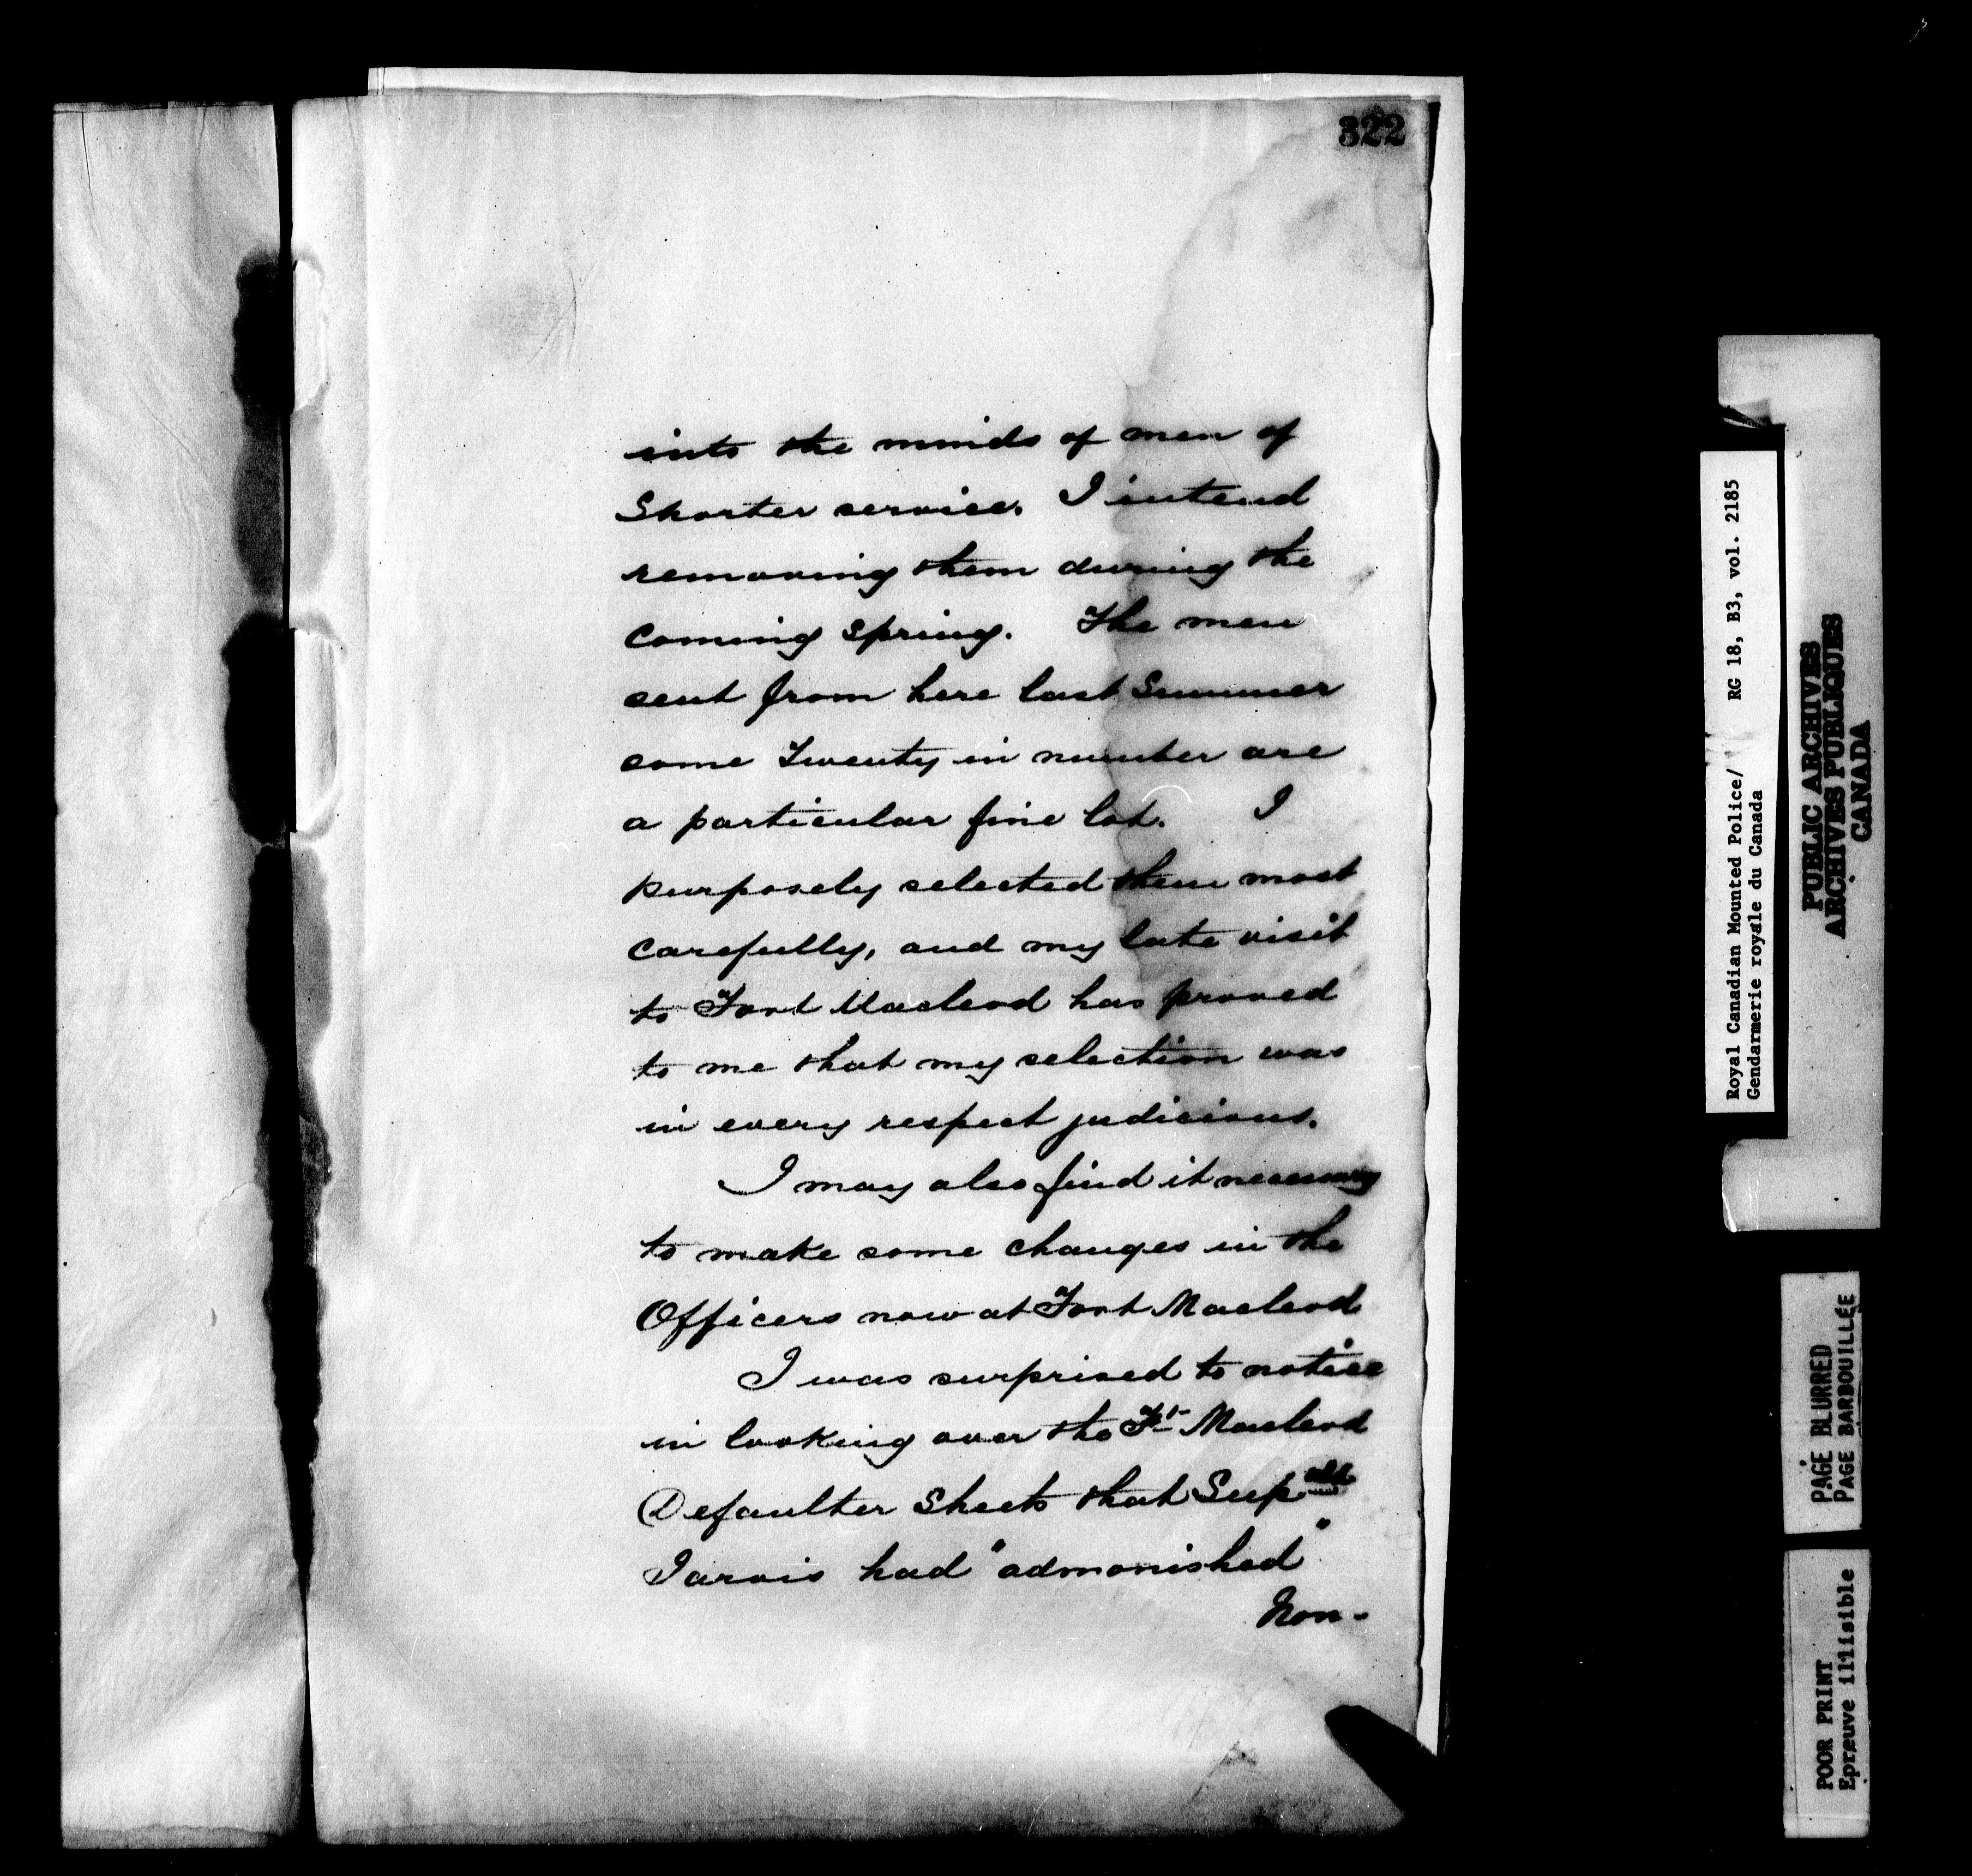 322
into the minds of men of
Shorter service. I intend
removing them during the
Coming Spring. The men
sent from here last Summer
some Twenty in number are
a particular fine lot. I
purposely selected them most
carefully, and my late visit
to Fort Macleod has proved
to me that my selection was
in every respect judicious.
I may also find it necessary
to make some changes in the
Officers now at Fort Macleod
I was surprised to notice
in looking over the Ft Macleod
Defaulter Sheets that Sup
Jarvis had "admonished"
Non-
Royal Canadian Mounted Police/ RG 18, B3, vol. 2185
Gendarmerie royale du Canada
PUBLIC ARCHIVES
ARCHIVES PUBLIQUES
CANADA
PAGE BLURRED
PAGE BARBOUILLÉE
POOR PRINT
Epreuve illisible